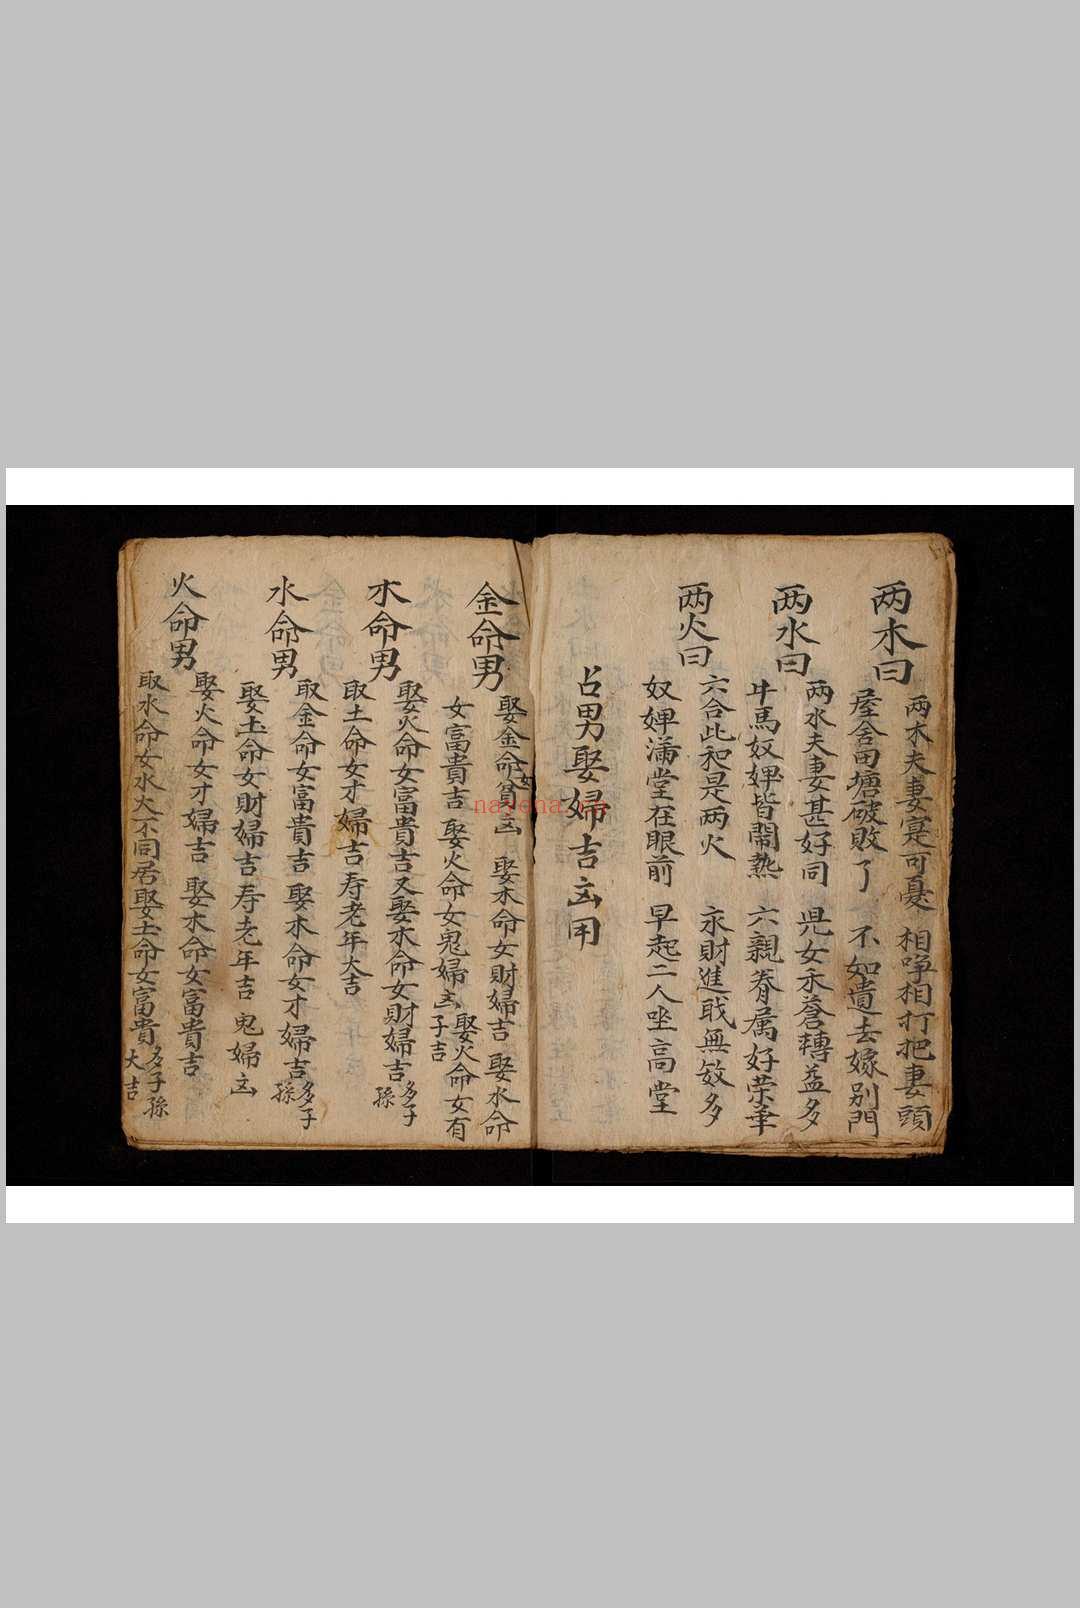 两木曰
两木夫妻寔可憂 相啀相打把妻頭
屋舍田塘破敗了 不如遣去嫁别門
两水曰
两水夫妻甚好同 児女禾蒼轉益多
牛馬奴婢皆閙熱 六親眷属好荣華
两火曰
六合此和是两火 永財進戝無数多
奴婢滿堂在眼前 早起二人坐高堂
占男娶婦吉凶用
金命男
娶金命女貧凶 娶木命女財婦吉 娶水命
女富貴吉 娶火命女鬼婦凶 娶火命女有
子吉
木命男
娶火命女富貴吉又娶水命女財婦吉 多子
孫
取土命女才婦吉寿老年大吉
水命男
取金命女富貴吉 娶木命女才婦吉 多子
孫
娶土命女財婦吉寿老年吉 鬼婦凶
火命男
娶火命女才婦吉 娶木命女富貴吉
取水命女水火不同居娶土命女富貴 多子孫
大吉
nayona.cn